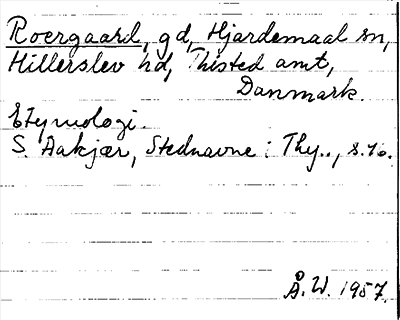 Roergaard, gd, Hjardemaal sn,
Hillerslev hd, Thisted amt,
Danmark.
Etymologi.
S. Aakjær, Stednavne i Thy.., s.76.
Å.W. 1957.